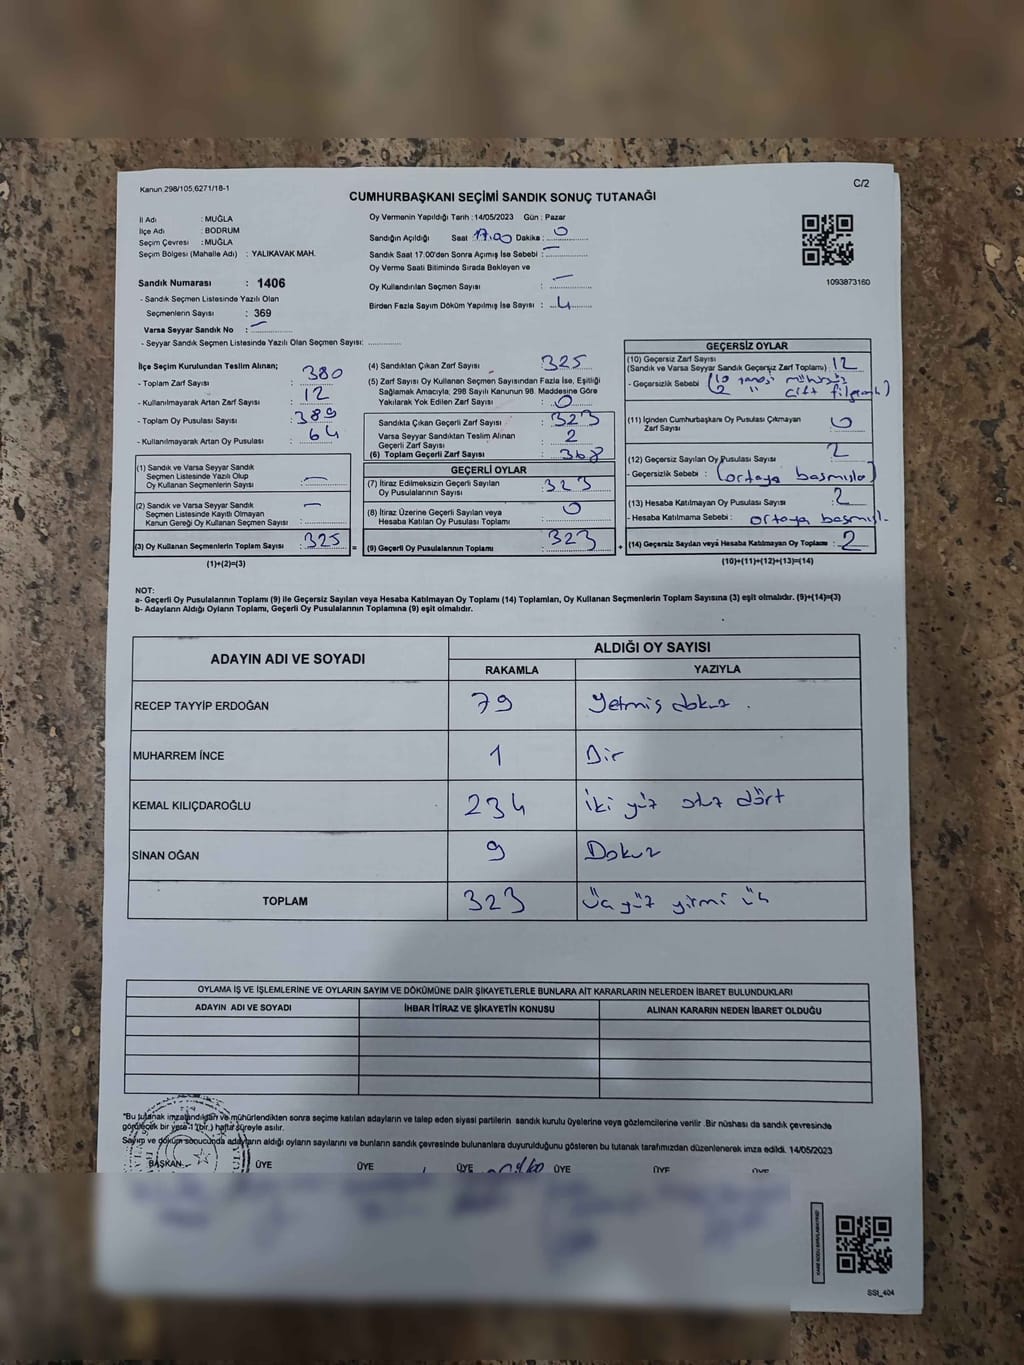 Kanun 298/105,6271/18-1
C/2
CUMHURBAŞKANI SEÇİMİ SANDIK SONUÇ TUTANAĞI
İl Adı : MUĞLA
İlçe Adı : BODRUM
Seçim Çevresi : MUĞLA
Seçim Bölgesi (Mahalle Adı) : YALIKAVAK MAH.
Oy Vermenin Yapıldığı Tarih : 14/05/2023 Gün : Pazar
Sandığın Açıldığı Saat 17.00 Dakika : 0
Sandık Saat 17.00'den Sonra Açımış İse Sebebi : —
Oy Verme Saati Bitiminde Sırada Bekleyen ve
Oy Kullandırılan Seçmen Sayısı : —
Birden Fazla Sayım Döküm Yapılmış İse Sayısı : 4
1093873160
Sandık Numarası : 1406
- Sandık Seçmen Listesinde Yazılı Olan
Seçmenlerin Sayısı : 369
Varsa Seyyar Sandık No : —
- Seyyar Sandık Seçmen Listesinde Yazılı Olan Seçmen Sayısı:
İlçe Seçim Kurulundan Teslim Alınan;
- Toplam Zarf Sayısı : 380
- Kullanılmayarak Artan Zarf Sayısı : 12
- Toplam Oy Pusulası Sayısı : 389
- Kullanılmayarak Artan Oy Pusulası : 64
(1) Sandık ve Varsa Seyyar Sandık
Seçmen Listesinde Yazılı Olup
Oy Kullanan Seçmenlerin Sayısı : —
(2) Sandık ve Varsa Seyyar Sandık
Seçmen Listesinde Kayıtlı Olmayan
Kanun Gereği Oy Kullanan Seçmen Sayısı : —
(3) Oy Kullanan Seçmenlerin Toplam Sayısı : 325 =
(1)+(2)=(3)
(4) Sandıktan Çıkan Zarf Sayısı : 325
(5) Zarf Sayısı Oy Kullanan Seçmen Sayısından Fazla İse, Eşitliği
Sağlamak Amacıyla, 298 Sayılı Kanunun 98. Maddesine Göre
Yakılarak Yok Edilen Zarf Sayısı : 0
Sandıkta Çıkan Geçerli Zarf Sayısı : 323
Varsa Seyyar Sandıktan Teslim Alınan
Geçerli Zarf Sayısı : 2
(6) Toplam Geçerli Zarf Sayısı : 368
GEÇERLİ OYLAR
(7) İtiraz Edilmeksizin Geçerli Sayılan
Oy Pusulalarının Sayısı : 323
(8) İtiraz Üzerine Geçerli Sayılan veya
Hesaba Katılan Oy Pusulası Toplamı : 0
(9) Geçerli Oy Pusulalarının Toplamı : 323 +
GEÇERSİZ OYLAR
(10) Geçersiz Zarf Sayısı
(Sandık ve Varsa Seyyar Sandık Geçersiz Zarf Toplamı) : 12
- Geçersizlik Sebebi : (10 tanesi mühürsüz
2 " çift filgranlı)
(11) İçinden Cumhurbaşkanı Oy Pusulası Çıkmayan
Zarf Sayısı : 0
(12) Geçersiz Sayılan Oy Pusulası Sayısı : 2
- Geçersizlik Sebebi : (ortaya basmışla)
(13) Hesaba Katılmayan Oy Pusulası Sayısı : 2
- Hesaba Katılmama Sebebi : ortaya basmışl.
(14) Geçersiz Sayılan veya Hesaba Katılmayan Oy Toplamı : 2
(10)+(11)+(12)+(13)=(14)
NOT:
a- Geçerli Oy Pusulalarının Toplamı (9) ile Geçersiz Sayılan veya Hesaba Katılmayan Oy Toplamı (14) Toplamları, Oy Kullanan Seçmenlerin Toplam Sayısına (3) eşit olmalıdır. (9)+(14)=(3)
b- Adayların Aldığı Oyların Toplamı, Geçerli Oy Pusulalarının Toplamına (9) eşit olmalıdır.
ADAYIN ADI VE SOYADI
ALDIĞI OY SAYISI
RAKAMLA YAZIYLA
RECEP TAYYİP ERDOĞAN 79 Yetmiş dokuz .
MUHARREM İNCE 1 Bir
KEMAL KILIÇDAROĞLU 234 iki yüz otuz dört
SİNAN OĞAN 9 Dokuz
TOPLAM 323 Üç yüz yirmi üç
OYLAMA İŞ VE İŞLEMLERİNE VE OYLARIN SAYIM VE DÖKÜMÜNE DAİR ŞİKAYETLERLE BUNLARA AİT KARARLARIN NELERDEN İBARET BULUNDUKLARI
ADAYIN ADI VE SOYADI İHBAR İTİRAZ VE ŞİKAYETİN KONUSU ALINAN KARARIN NEDEN İBARET OLDUĞU
"Bu tutanak imzalandıktan ve mühürlendikten sonra seçime katılan adayların ve talep eden siyasi partilerin sandık kurulu üyelerine veya gözlemcilerine verilir .Bir nüshası da sandık çevresinde
görülecek bir yere 1 (bir ) hafta süreyle asılır.
Sayım ve döküm sonucunda adayların aldığı oyların sayılarını ve bunların sandık çevresinde bulunanlara duyurulduğunu gösteren bu tutanak tarafımızdan düzenlenerek imza edildi. 14/05/2023
BAŞKAN ÜYE ÜYE ÜYE ÜYE ÜYE ÜYE
SSI_404